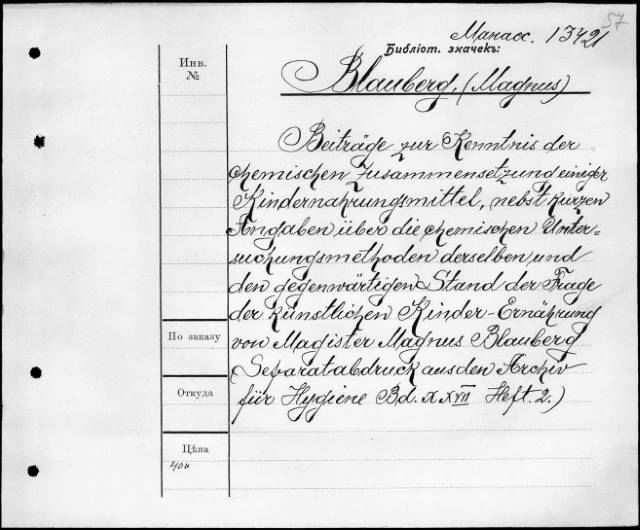 57
Манасс. 13421
Библіот. значекъ:
Инв.
№
Blauberg, (Magnus)
Beiträge zur Kenntnis der
chemischen Zusammensetzung einiger
Kindernahrungsmittel, nebst kurzen
Angaben über die chemischen Unter=
suchungsmethoden derselben und
den gegenwärtigen Stand der Frage
der künstlichen Kinder-Ernährung
von Magister Magnus Blauberg
(Separatabdruck aus den Archiv
für Hygiene Bd. XXVII Heft. 2.)
По заказу
Откуда
Цѣна